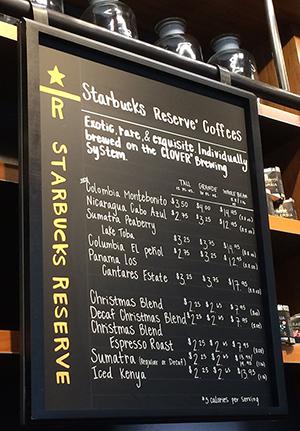 ★
R STARBUCKS RESERVE
Starbucks Reserve® Coffees
Exotic, rare, & exquisite. Individually
brewed on the CLOVER® Brewing
System.
TALL GRANDE WHOLE BEAN
Colombia Montebonito $3.50 $4.00
Nicaragua Cabo Azul $2.75 $3.25
Sumatra Peaberry
Lake Toba $3.25 $3.75
Columbia El peñol $2.75 $3.25
Panama Los
Cantares Estate $3.25 $3.75
Christmas Blend $2.25 $2.65
Decaf Christmas Blend $2.25 $2.65
Christmas Blend
Espresso Roast $2.25 $2.65
Sumatra (Regular or Decaf) $2.25 $2.65
Iced Kenya $2.25 $2.65 $13.95
*5 calories per serving